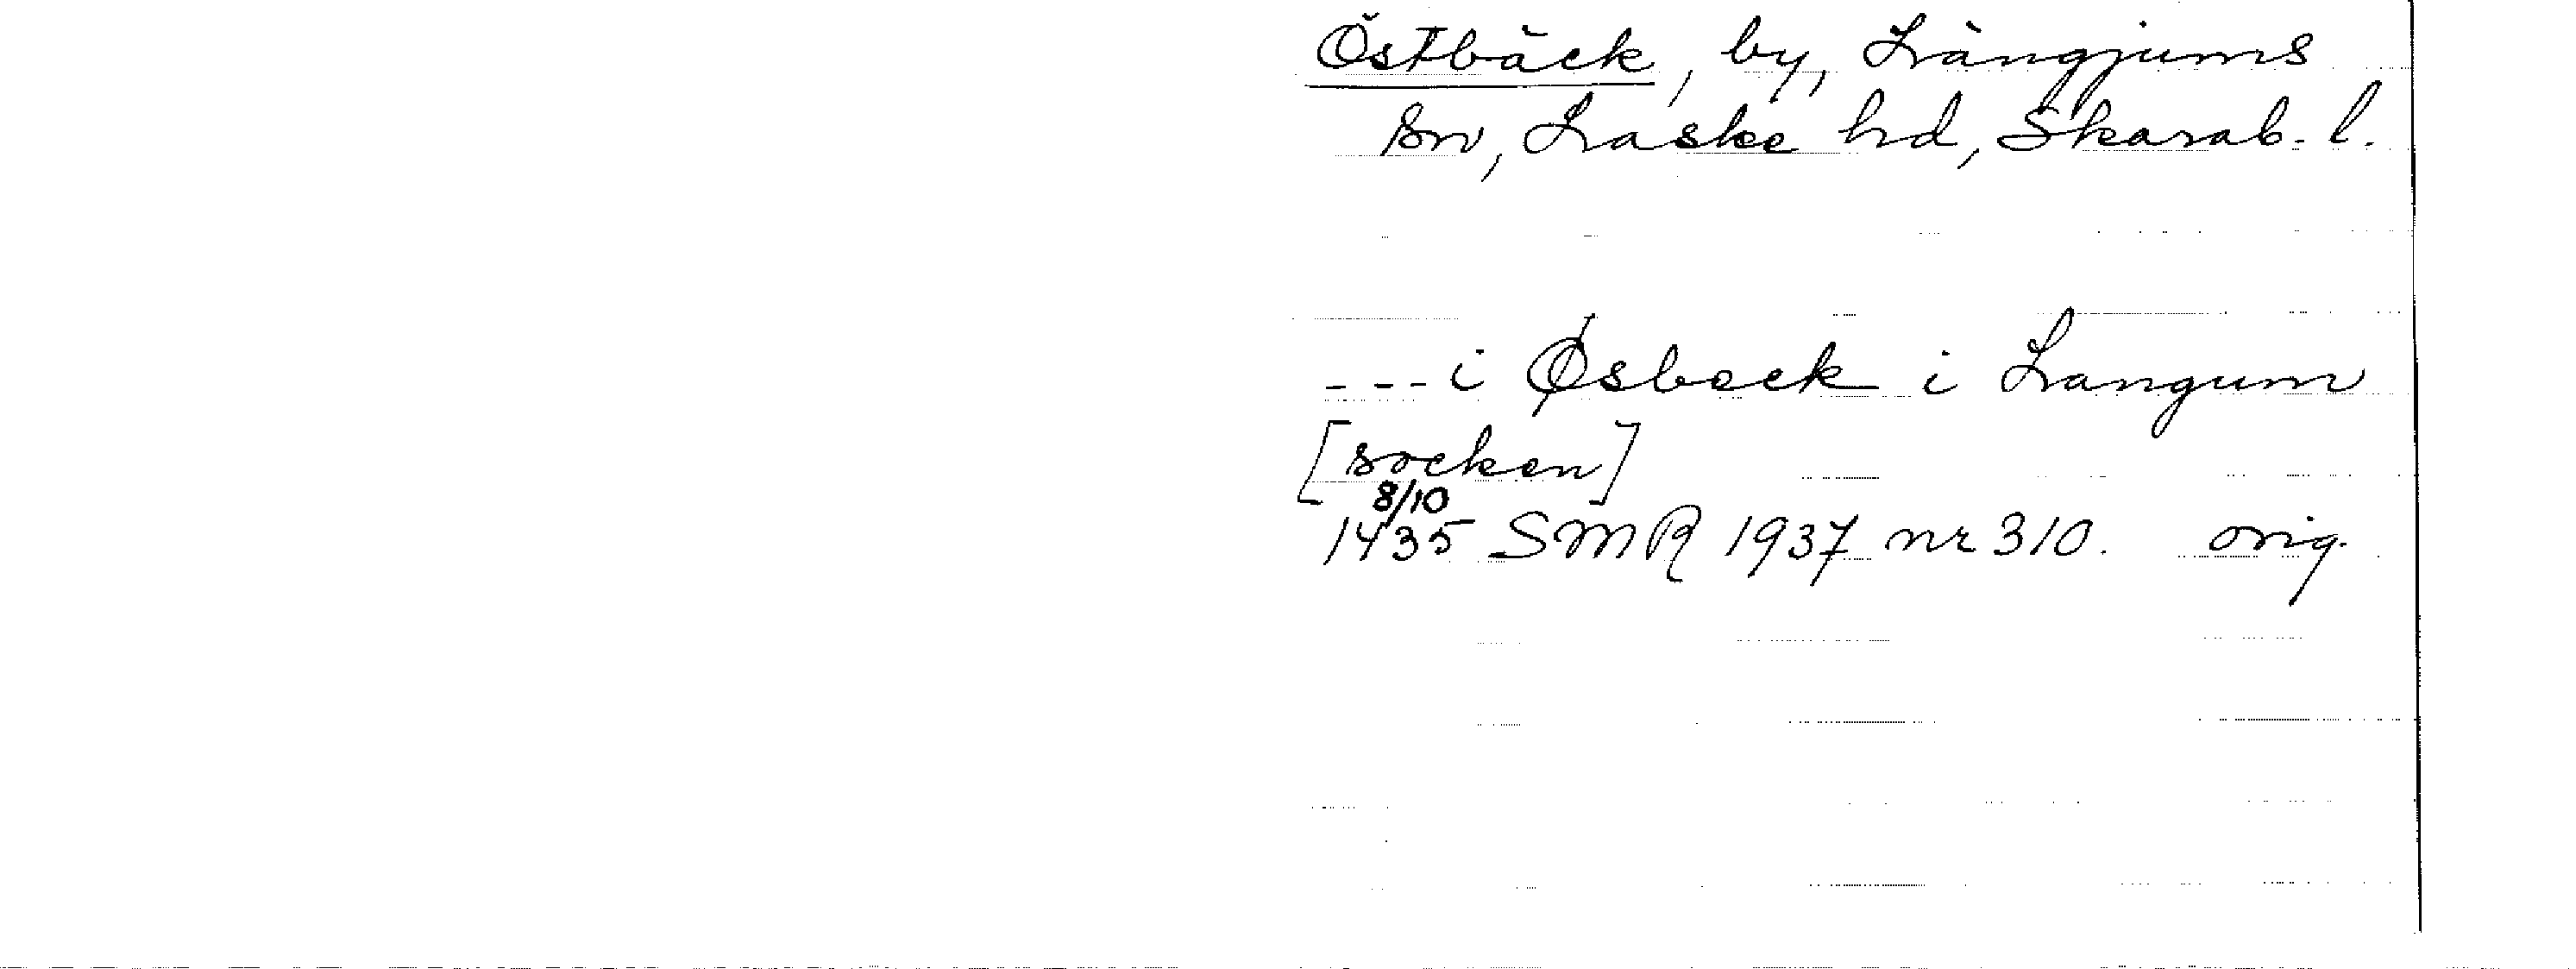 Östbäck, by, Längjums
sn, Laske hd, Skarab. l.
--- i Øsbeck i Langum
[socken]
8/10
1435 SMR 1937 nr 310. orig.